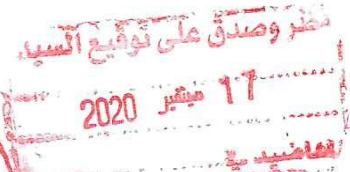 نظر وصدق على توقيع السيد
17 سبتمبر 2020